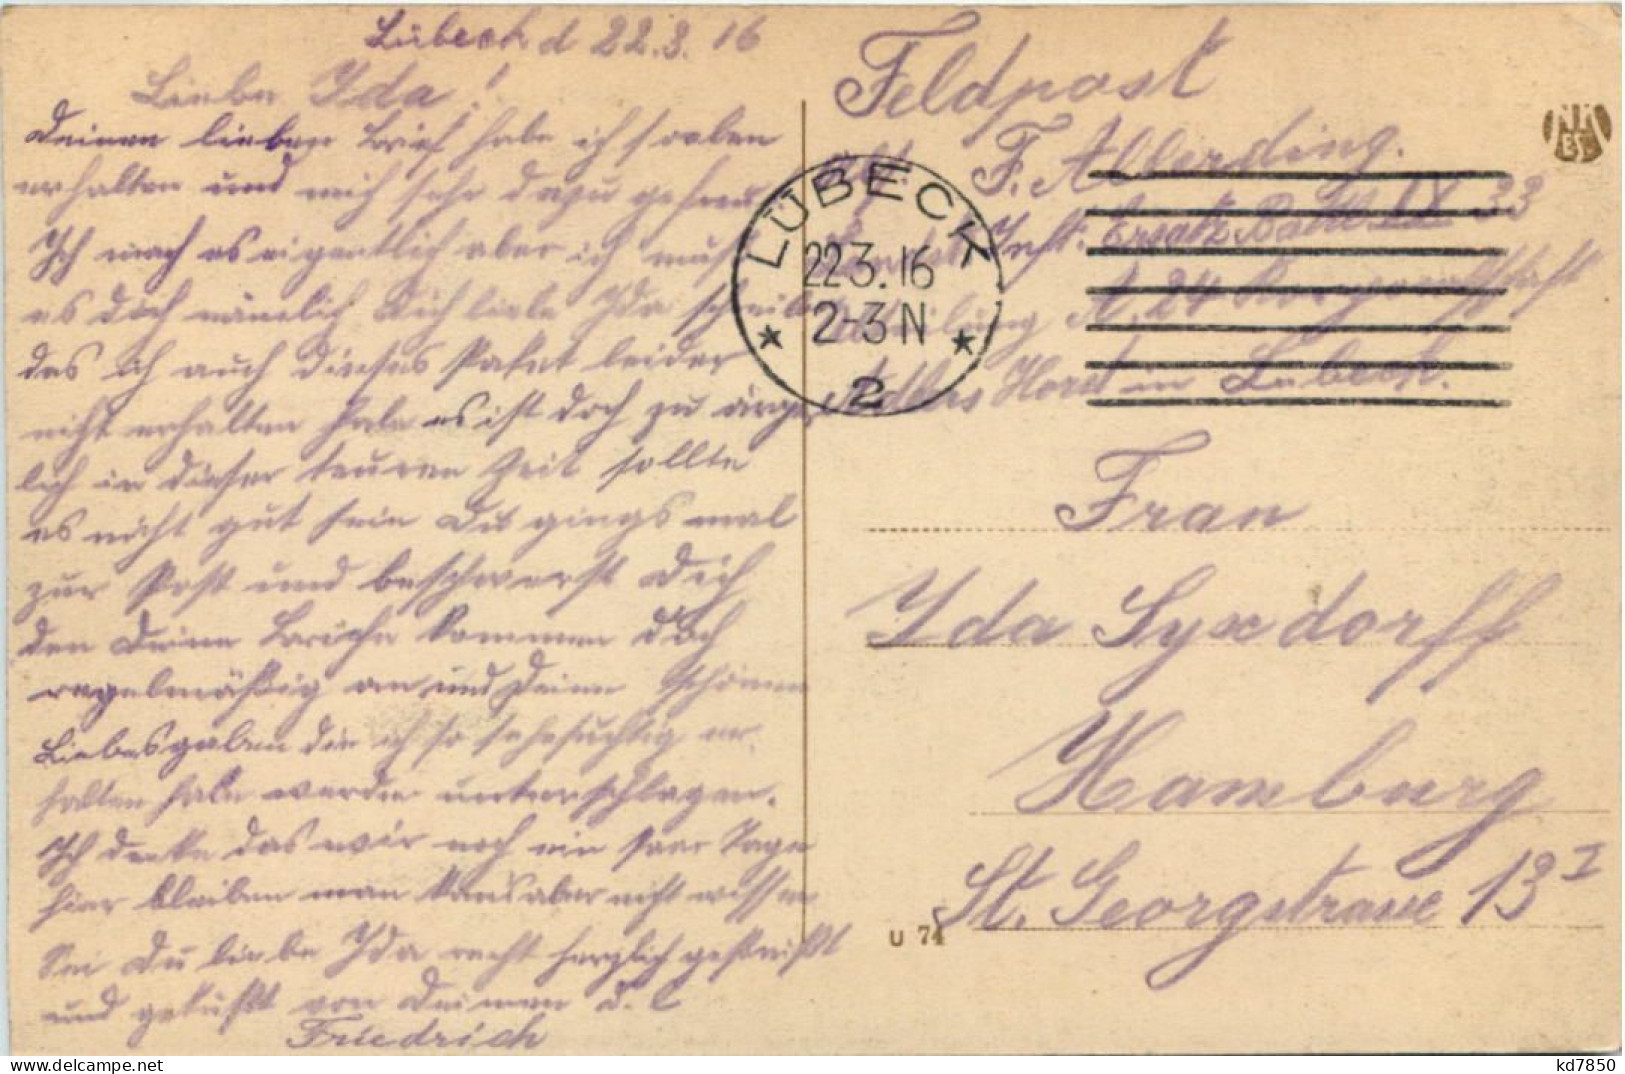 Lübeck d 22.3.16
Liebe Ida!
Deinen lieben Brief habe ich soeben
erhalten und mich sehr dazu gefreut
Ich mach es eigentlich aber ich muß
es doch nämlich Dich liebe Ida schreiben
das ich auch dieses Paket leider
nicht erhalten habe es ist doch zu ärger
lich in dieser teuren Zeit sollte
es nicht gut sein Du gings mal
zur Post und beschwerst Dich
den Deine Briefe kommen doch
regelmäßig an und Deine schönen
Liebesgaben die ich so sehesüchtig er
halten habe werden unterschlagen.
Ich denke das wir noch ein paar Tage
hier bleiben man kans aber nicht wissen
Sei Du liebe Ida recht herzlich
und geküßt von Deinen d. l
Friedrich
Feldpost
F. Alberding.
Inft. Ersatz Batl IX 33
A. 24 Korporalschaft
Adlers Horst in Lübeck.
LÜBECK
22.3.16
2-3N
2
Frau
Ida Syxdorff
Hamburg
St. Georgstrasse 13 I
U 74
kd7850